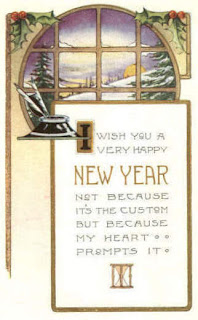 I WISH YOU A
VERY HAPPY
NEW YEAR
NOT BECAUSE
IT'S THE CUSTOM
BUT BECAUSE
MY HEART
PROMPTS IT